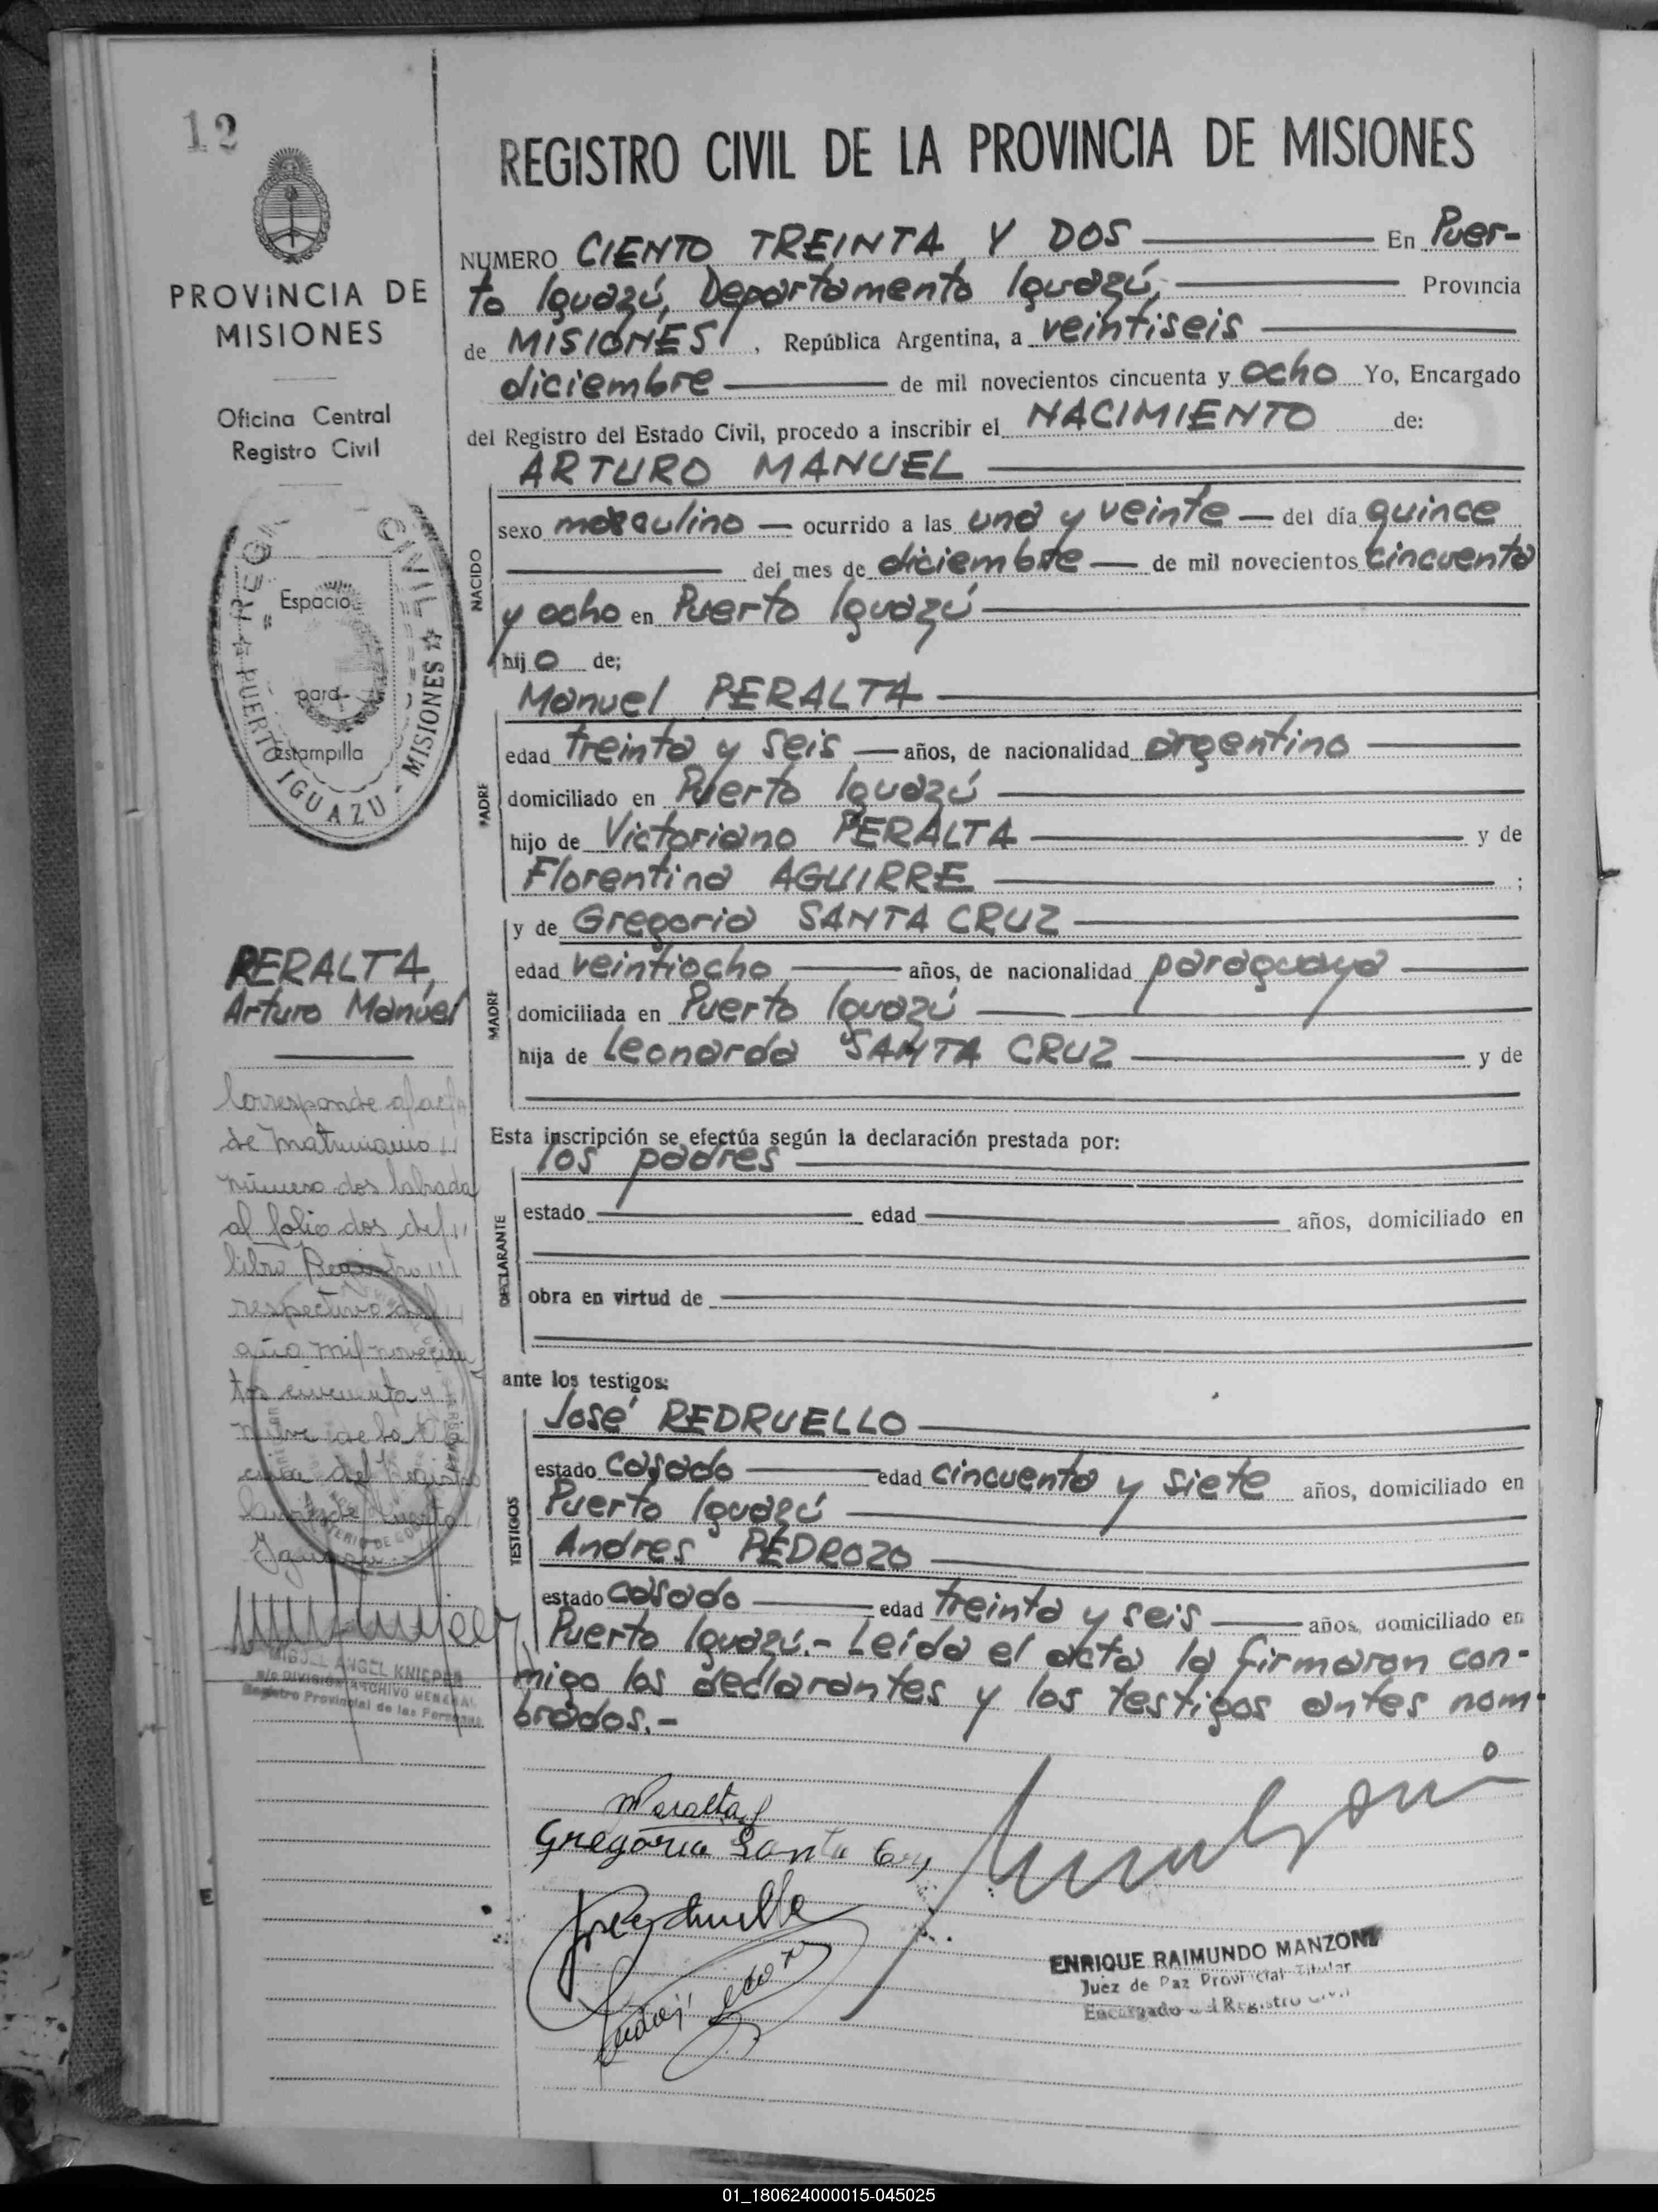 12
REGISTRO CIVIL DE LA PROVINCIA DE MISIONES
PROVINCIA DE
MISIONES
Oficina Central
Registro Civil
REG CIVIL
Espacio
para
Estampilla
☆ PUERTO IGUAZU - MISIONES ☆
NUMERO CIENTO TREINTA Y DOS En Puer-
to Iguazú, Departamento Iguazú, Provincia
de MISIONES, República Argentina, a veintiseis
diciembre de mil novecientos cincuenta y ocho Yo, Encargado
del Registro del Estado Civil, procedo a inscribir el NACIMIENTO de:
ARTURO MANUEL
NACIDO
sexo masculino ocurrido a las una y veinte del día quince
del mes de diciembre de mil novecientos cincuenta
y ocho en Puerto Iguazú
hijo de;
Manuel PERALTA
PADRE
edad treinta y seis años, de nacionalidad argentino
domiciliado en Puerto Iguazú
hijo de Victoriano PERALTA y de
Florentina AGUIRRE ;
y de Gregoria SANTA CRUZ
MADRE
edad veintiocho años, de nacionalidad paraguaya
domiciliada en Puerto Iguazú
hija de Leonarda SANTA CRUZ y de
Esta inscripción se efectúa según la declaración prestada por:
los padres
DECLARANTE
estado edad años, domiciliado en
obra en virtud de
ante los testigos:
José REDRUELLO
TESTIGOS
estado casado edad cincuenta y siete años, domiciliado en
Puerto Iguazú
Andres PEDROZO
estado casado edad treinta y seis años, domiciliado en
Puerto Iguazú.- Leída el acta la firmaron con-
migo los declarantes y los testigos antes nom-
brados.-
PERALTA,
Arturo Manuel
Corresponde a acta
de matrimonio
número dos labrada
al folio dos del
libro Registro
respectivo del
año mil novecien
tos cincuenta y
nueve de la
del Registro
Puerto
Iguazú
MIGUEL ANGEL KNIEPER
a/c DIVISION ARCHIVO GENERAL
Registro Provincial de las Personas
MPeralta
Gregoria Santa Cruz
ENRIQUE RAIMUNDO MANZONI
Juez de Paz Provincial Titular
Encargado del Registro Civil
01_180624000015-045025